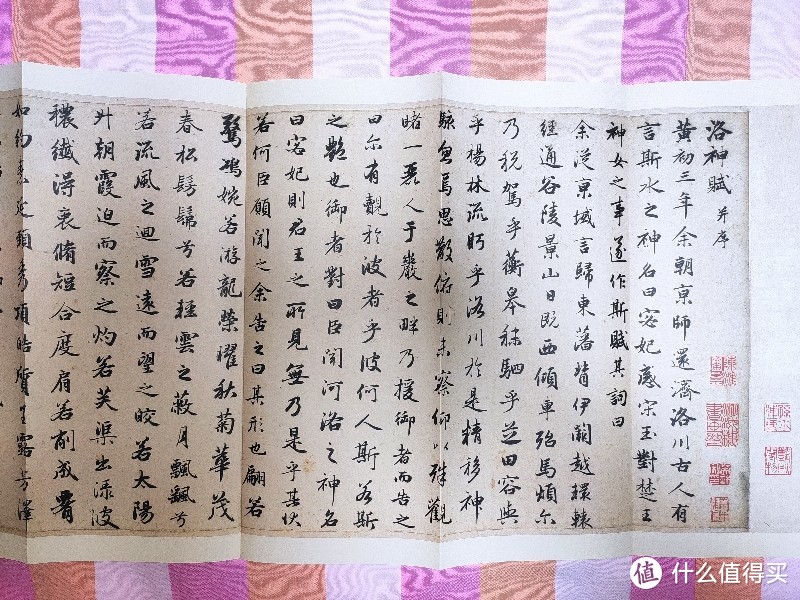 洛神賦 并序
黃初三年余朝京師還濟洛川古人有
言斯水之神名曰宓妃感宋玉對楚王
神女之事遂作斯賦其詞曰
余從京域言歸東藩背伊闕越轘轅
經通谷陵景山日既西傾車殆馬煩尒
乃稅駕乎蘅皋秣駟乎芝田容與
乎楊林流眄乎洛川於是精移神
駭忽焉思散俯則未察仰以殊觀
睹一麗人于巖之畔乃援御者而告之
曰尒有覿於彼者乎彼何人斯若斯
之艷也御者對曰臣聞河洛之神名
曰宓妃則君王之所見無乃是乎其狀
若何臣願聞之余告之曰其形也翩若
驚鴻婉若游龍榮曜秋菊華茂
春松髣髴兮若輕雲之蔽月飄飄兮
若流風之迴雪遠而望之皎若太陽
升朝霞迫而察之灼若芙渠出淥波
穠纖得衷脩短合度肩若削成腰
如約素延頸秀項皓質呈露芳澤
值 什么值得买